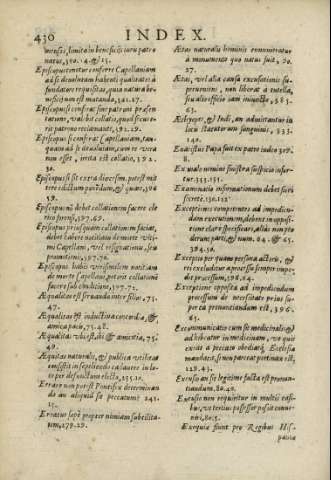 430
INDEX.
mensis, si mitabi beneficijs iuri patro
natus, 300.14.& 15.
Episcopus tenetur conferre Capellaniam
ad se deuolutam habenti qualitates à
fundatore requisitas, quia natura be-
neficij non est mutanda, 341.27.
Episcopus si conferat sine patroni præsen-
tatione, valebit collatio, quod si secu-
ris patrono reclamante, 391.29.
Episcopus si conferat Capellaniam, tan-
quam ad se deuolutam, cum re vera
non esset, irrita est collatio, 391.
30.
Episcopus si sit extra diœcesim, potest mit
tere edictum per Vdum, & quare, 396
39.
Episcopum debet collationem facere cle
rico ipsius, 397.69.
Episcopus prius quam collationem faciat,
debet habere notitiam de morte vlti-
mi Capellani, vel resignatione, seu
promotione, 397.70.
Episcopus habita verisimilem notitiam
de morte Capellani, potest collationem
facere seu prouisionem, 397.71.
Æqualitas est seruanda inter filios, 75.
47.
Æqualitas est inductiua concordiæ, &
amica pacis, 75.48.
Æqualitas vbi est, ibi & amicitia, 75.
49.
Æquitas naturalis, & publica vtilitas
consistit in sepeliendo cadauere in lo-
co per defunctum electo, 255.10.
Errare non potest Pontifex determinan
do an aliquid sit peccatum 245.
15.
Erratur sæpè propter nimiam subtilita-
tem, 279.29.
Ætas naturalis hominis remuneratur
à momento quo natus fuit, 60.
27.
Ætas, vel alia causa excusationis su-
perueniens, non liberat à tutella,
siue alio officio iam iniuncto, 385.
63.
& Indi, an admittantur in
locu statutarum sanguinis, 333.
140.
Euaristus Papa fuit ex patre iudeo 307.
8.
Ex malo nomini sinistra suspicio infer-
tur, 353.151.
Examinatio informationum debet fieri
secrete, 130.121
Exceptiones competentes ad impedien-
dum executionem, debent in opposi-
tione clare specificari, alias non pro
derunt parti, & num. 64. & 65.
384.50.
Exceptio per quam persona actoris, &
rei excluditur à processu semper impe-
dit processum, 398.84.
Exceptione opposita ad impediendum
processum de necessitate prius su-
per ea pronuntiandum est, 396.
65.
Excommunicatio cum sit medicinalis &
adhibeatur in medicinam, vt quis
exeat à peccato obediens Ecclesiæ
mandatis, si non pareat pertinax est,
128.43.
Excusatio se legitime facta est pronun-
tiandum, 80.40.
Excusatio non requiritur in multis casi-
bus, vt tertius possessor possit conue-
niri, 80.51.
Exequia fiunt pro Regibus His-
paniæ